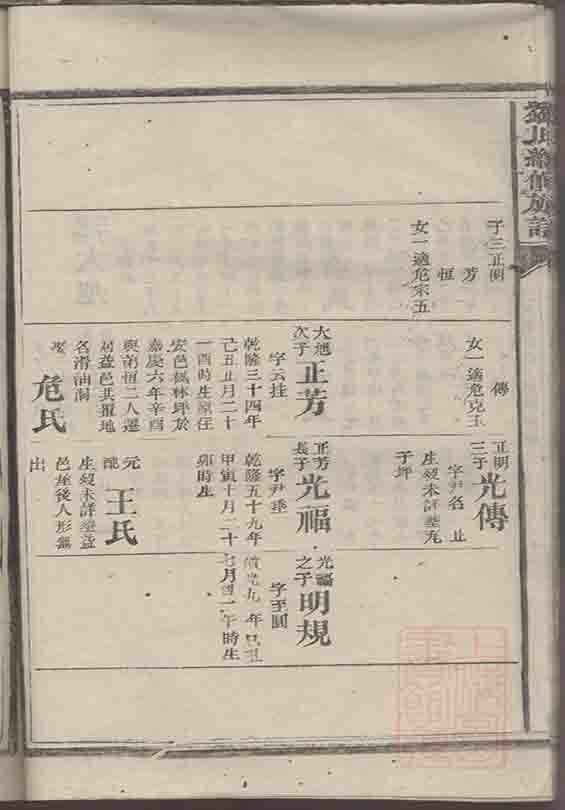 子三正明
芳
恒
女一適危宋五
傳
女一適危克玉
大旭
次子
正芳
字云挂
乾隆三十四年
己丑正月二十
一酉時生原住
安邑楓林坪於
嘉慶六年辛酉
與弟恒二人遷
名滑油洞
娶
危氏
正明
三子
光傳
字尹名
生歿未詳葬瓦
子坪
正芳
長子
光福
字尹垂
乾隆五十九年
甲寅十月二十
卯時生
元
配
王氏
生歿未詳葬益
邑屋後人形無
出
光福
之子
明規
字至圓
道光九年己丑
時生